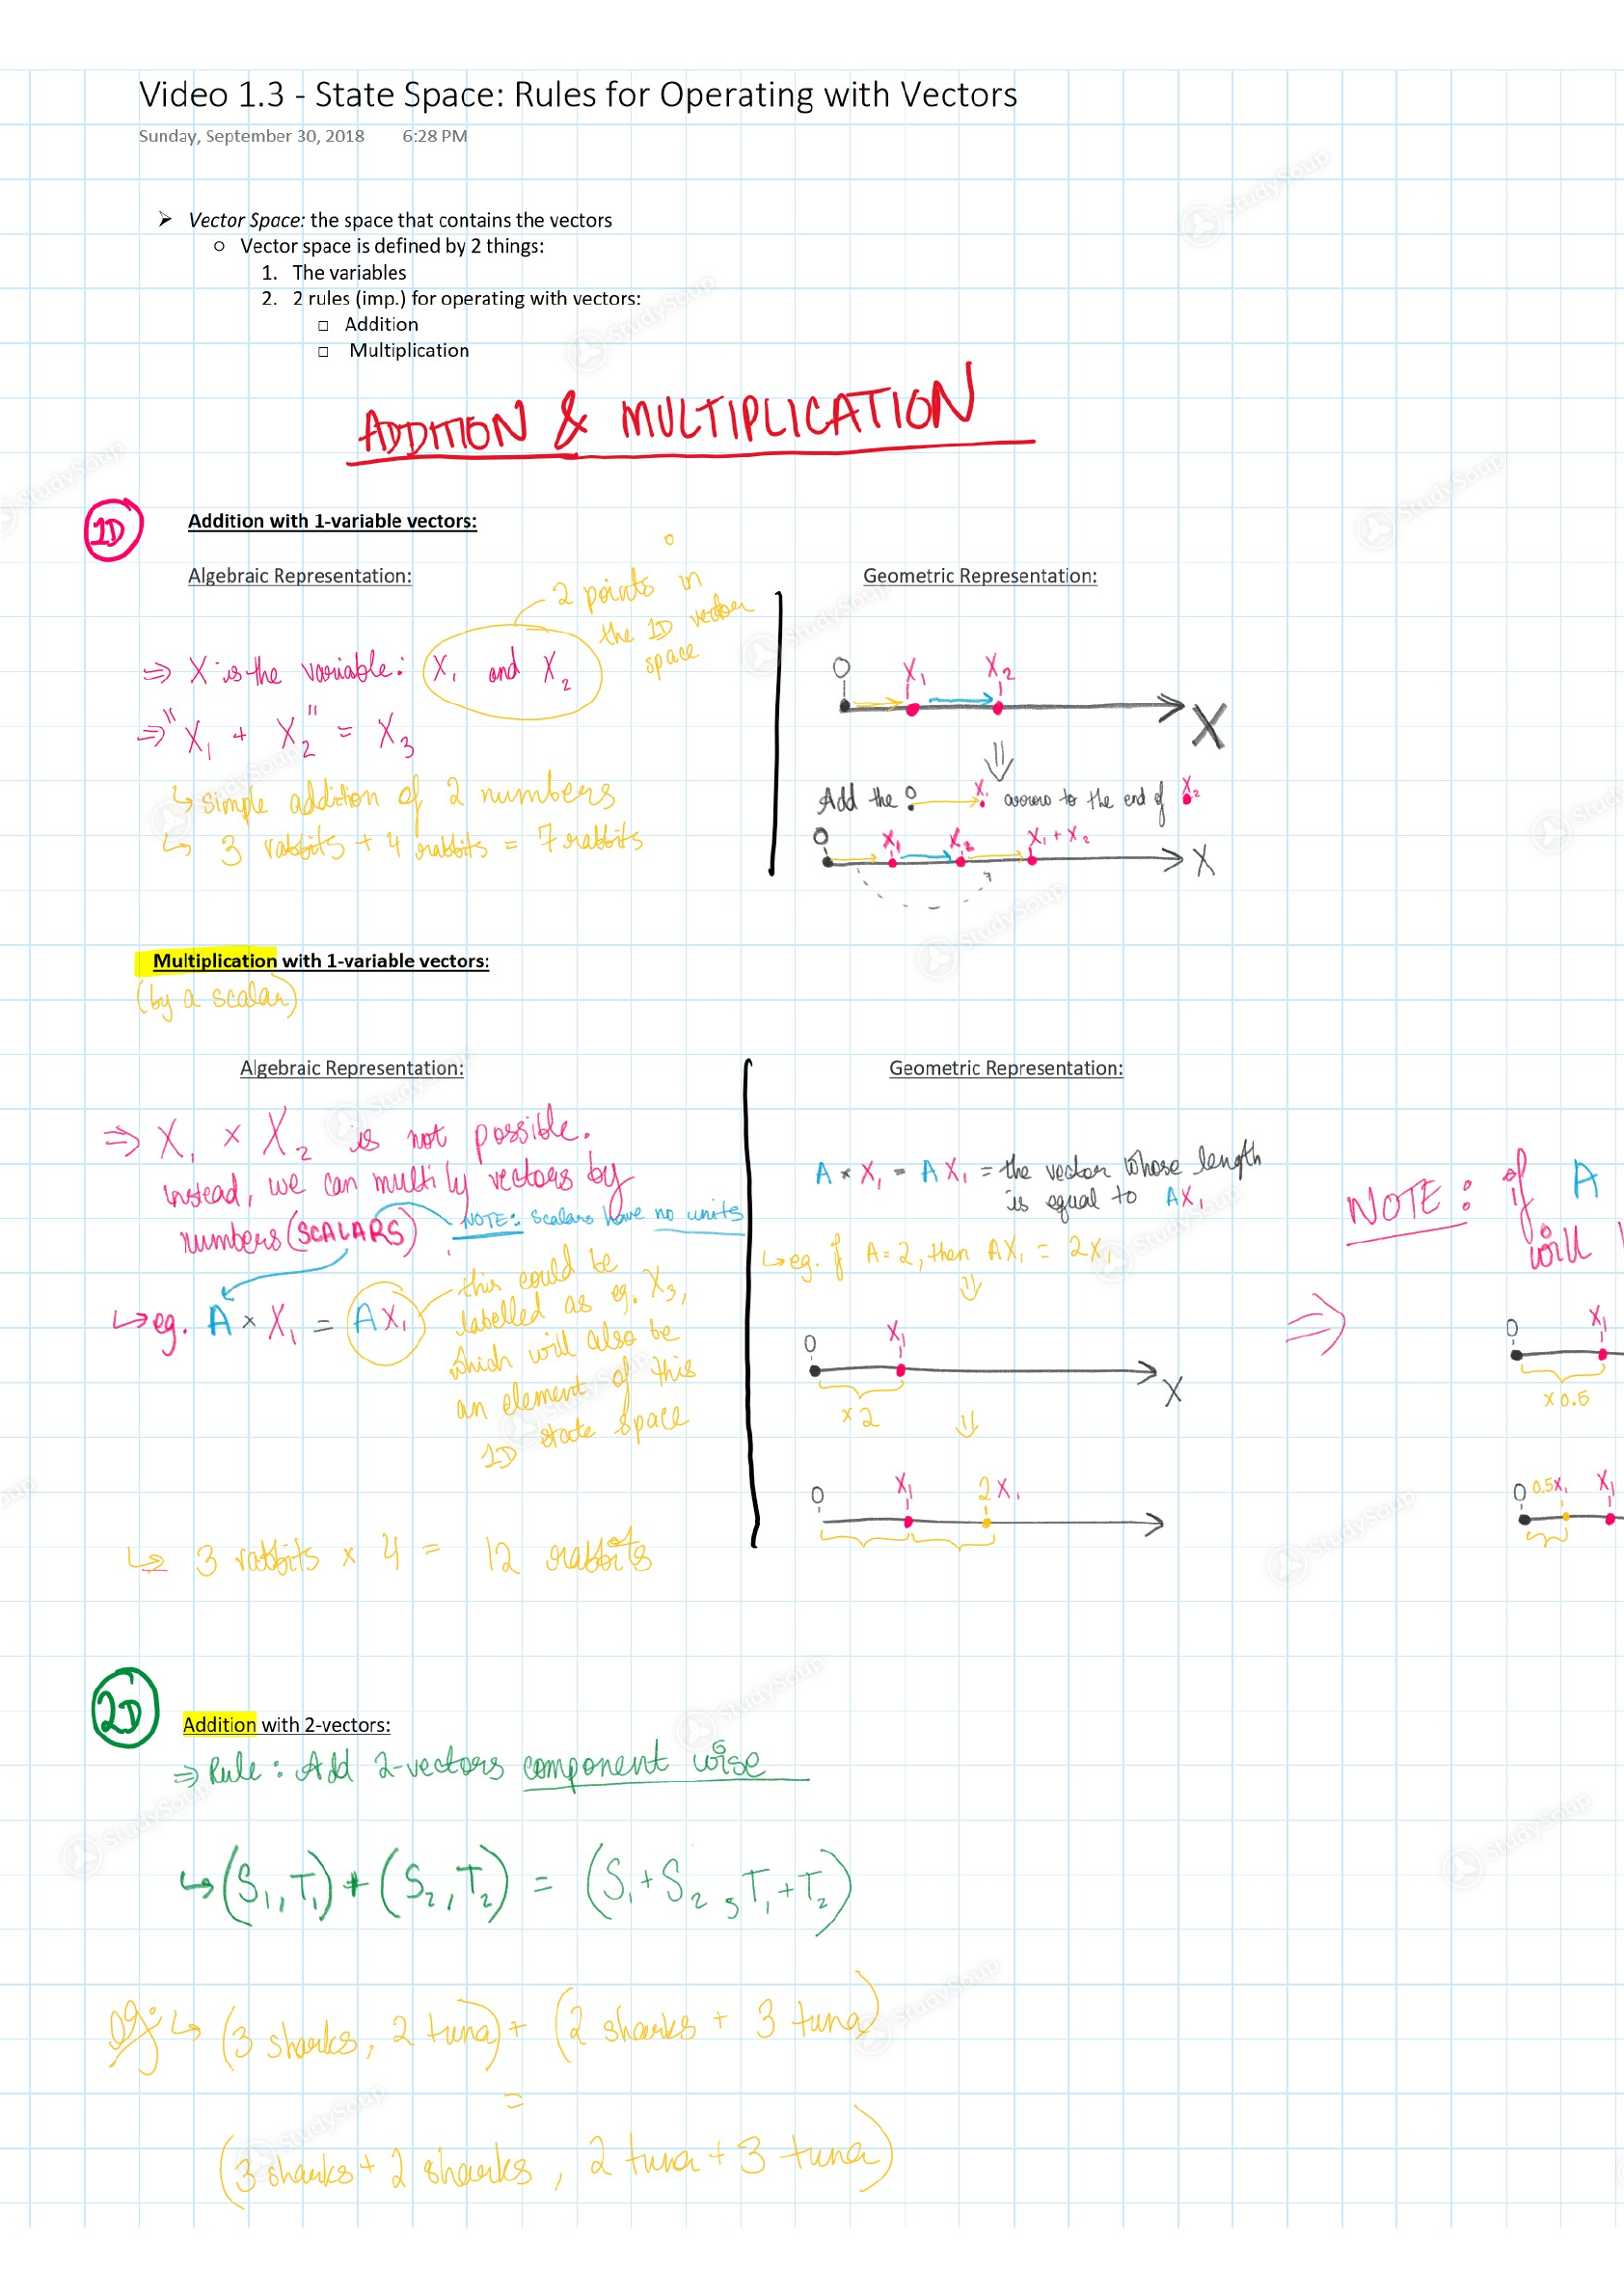 Video 1.3 - State Space: Rules for Operating with Vectors
Sunday, September 30, 2018 6:28 PM
➤ Vector Space: the space that contains the vectors
○ Vector space is defined by 2 things:
1. The variables
2. 2 rules (imp.) for operating with vectors:
□ Addition
□ Multiplication
ADDITION & MULTIPLICATION
1D
Addition with 1-variable vectors:
Algebraic Representation:
2 points in
the 1D vector
space
⇒ X is the variable: X₁ and X₂
⇒ "X₁ + X₂" = X₃
↳ simple addition of 2 numbers
↳ 3 rabbits + 4 rabbits = 7 rabbits
Geometric Representation:
O X₁ X₂
X
⇓
Add the O → X₁ arrow to the end of X₂
O X₁ X₂ X₁ + X₂
X
Multiplication with 1-variable vectors:
(by a scalar)
Algebraic Representation:
⇒ X₁ × X₂ is not possible.
instead, we can multily vectors by
numbers (SCALARS)
NOTE: scalars have no units
↳ eg. A × X₁ = AX₁
this could be
labelled as eg. X₃,
which will also be
an element of this
1D state space
↳ 3 rabbits × 4 = 12 rabbits
Geometric Representation:
A × X₁ = AX₁ = the vector whose length
is equal to AX₁
↳ eg. if A = 2, then AX₁ = 2X₁
⇓
O X₁
X
×2
⇓
O X₁ 2X₁
⇒
NOTE: if A
will
O X₁
×0.5
O 0.5X₁ X₁
2D
Addition with 2-vectors:
⇒ Rule: Add 2-vectors component wise
↳ (S₁, T₁) + (S₂, T₂) = (S₁+S₂, T₁+T₂)
eg. ↳ (3 sharks, 2 tuna) + (2 sharks + 3 tuna)
=
(3 sharks + 2 sharks, 2 tuna + 3 tuna)
StudySoup